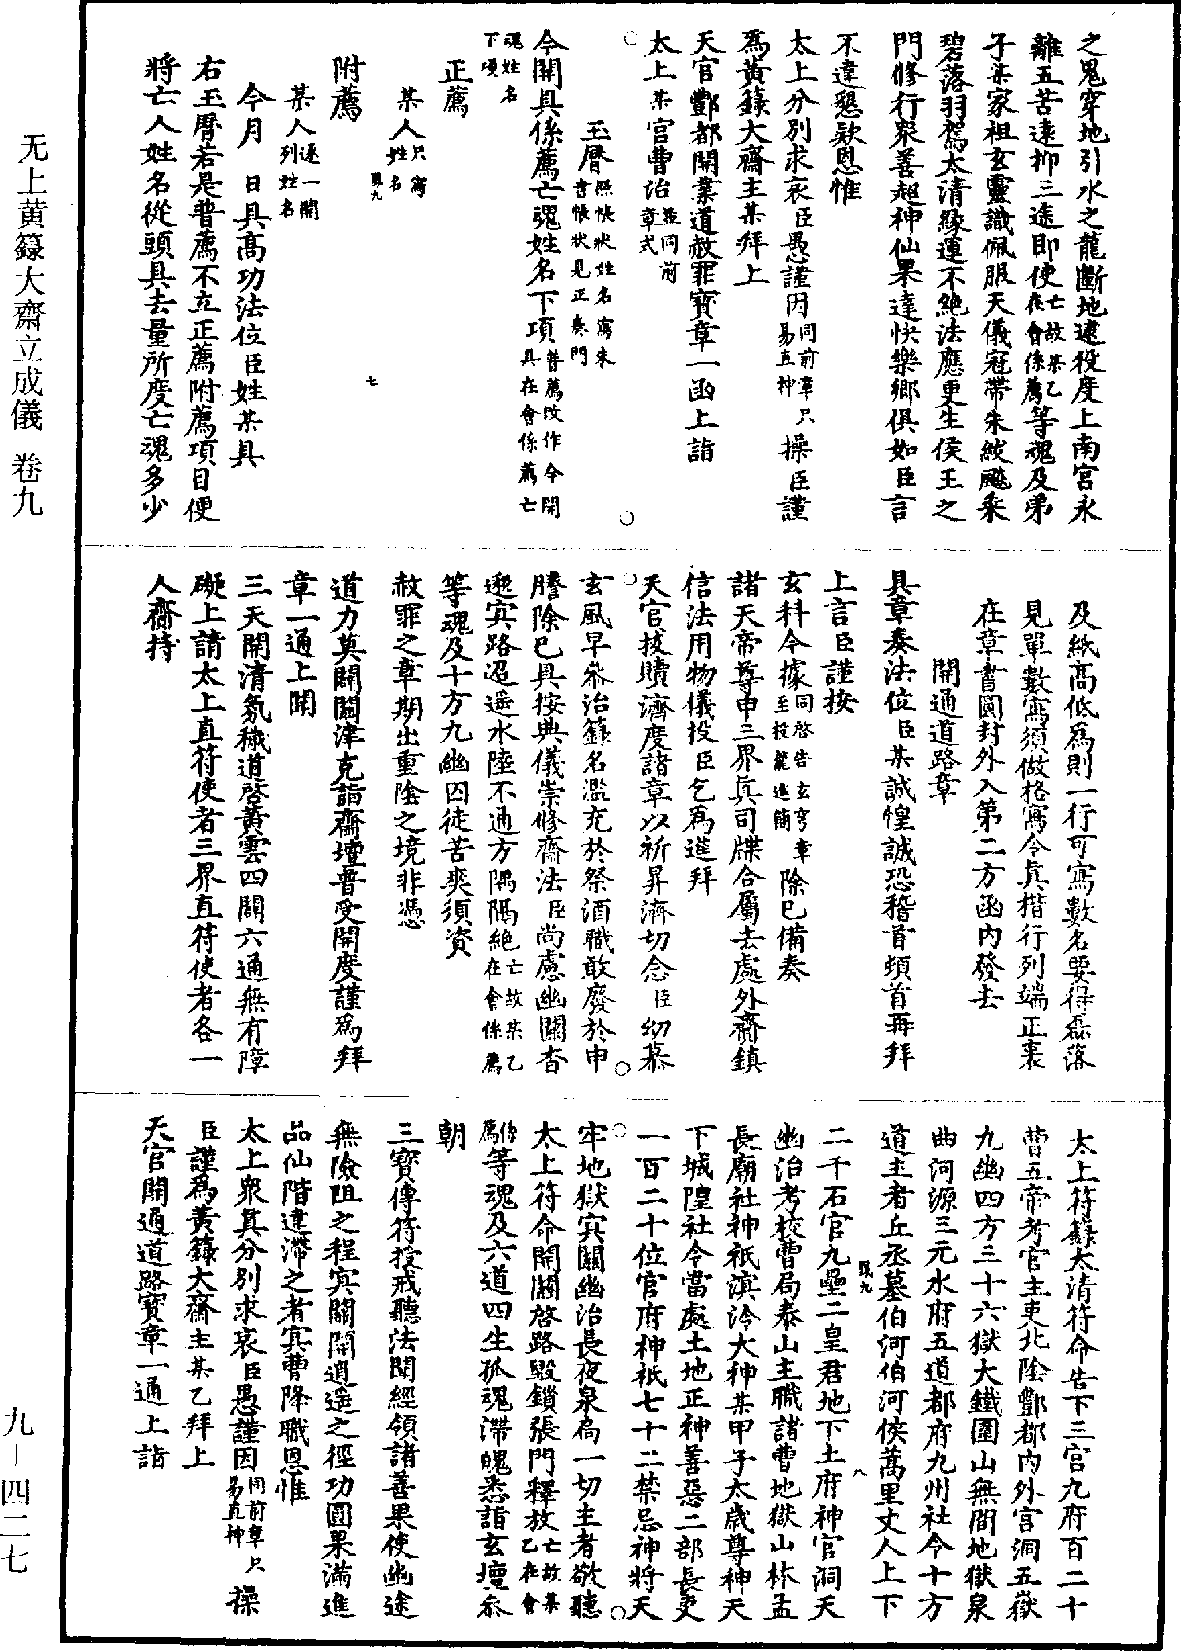 之鬼穿地引水之龍斷地逮役度上南宮永
離五苦遠抑三途即使亡故某乙在會係薦等魂及弟
子某家祖玄靈識佩服天儀冠帶朱紱飈乘
碧落羽駕太清緣運不絕法應更生侯王之
門修行衆善超神仙果達快樂鄉俱如臣言
不違懇款恩惟
太上分別求哀臣愚謹因同前章只易直神操臣謹
爲黃籙大齋主某拜上
天官酆都開業道赦罪寶章一函上詣
太上某宮曹治並同前章式
玉曆照帳狀姓名寫來書帳狀見正奏門
今開具係薦亡魂姓名下項普薦改作今開具在會係薦亡
魂姓名下項
正薦
某人只寫姓名
附薦
某人逐一開列姓名
今月 日具高功法位臣姓某具
右玉曆若是普薦不立正薦附薦項目便
將亡人姓名從頭具去量所度亡魂多少
及紙高低爲則一行可寫數名要得磊落
見單數寫須做格寫令眞楷行列端正裹
在章書圓封外入第二方函內發去
開通道路章
具章奏法位臣某誠惶誠恐稽首頓首再拜
上言臣謹按
玄科今據同啓告玄穹章至投龍進簡除已備奏
諸天帝尊申三界眞司牒合屬去處外齋鎮
信法用物儀投臣乞爲進拜
天官拔贖濟度諸章以祈昇濟切念臣幼慕
玄風早叅治籙名濫充於祭酒職敢廢於申
謄除已具按典儀崇修齋法臣尚慮幽關杳
邈冥路迢遥水陸不通方隅隔絕亡故某乙在會係薦
等魂及十方九幽囚徒苦爽須資
赦罪之章期出重陰之境非憑
道力莫開關津克詣齋壇普受開度謹爲拜
章一通上聞
三天開清氛穢道啓黃雲四闢六通無有障
礙上請太上直符使者三界直符使者各一
人齎持
太上符籙太清符命告下三官九府百二十
曹五帝考官主吏北陰酆都內外宮洞五嶽
九幽四方三十六獄大鐵圍山無間地獄泉
曲河源三元水府五道都府九州社令十方
道主者丘丞墓伯河伯河侯萬里丈人上下
二千石官九壘二皇君地下土府神官洞天
幽治考校曹局泰山主職諸曹地獄山林孟
長廟社神祇溟泠大神某甲子太歲尊神天
下城隍社令當處土地正神善惡二部長吏
一百二十位官府神祇七十二禁忌神將天
牢地獄冥關幽治長夜泉扃一切主者欽聽
太上符命開闢啓路毀鎖張門釋放亡故某乙在會
係薦等魂及六道四生孤魂滯魄悉詣玄壇叅
朝
三寶傳符授戒聽法聞經領諸善果使幽途
無險阻之程冥關開逍遥之徑功圓果滿進
品仙階違滯之者冥曹降職恩惟
太上衆眞分別求哀臣愚謹因同前章只易直神操
臣謹爲黃籙大齋主某乙拜上
天官開通道路寶章一通上詣
籙九
七
籙九
八
无上黄籙大齋立成儀 卷九
九－四二七